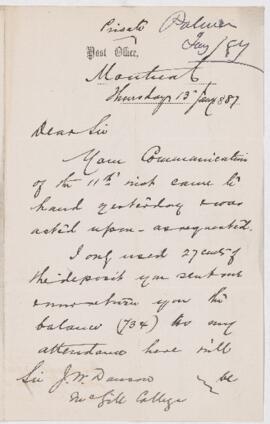 Private
Palmer
Jany/87
Post Office,
Montreal
Thursday 13 Jany 1887
Dear Sir
Your Communication
of the 11th inst came to
hand yesterday & was
acted upon as requested.
I only used 27 cents of
the deposit you sent me
& now return you the
balance (73¢) As my
attendance here will
be
Sir J. W. Dawson
McGill College